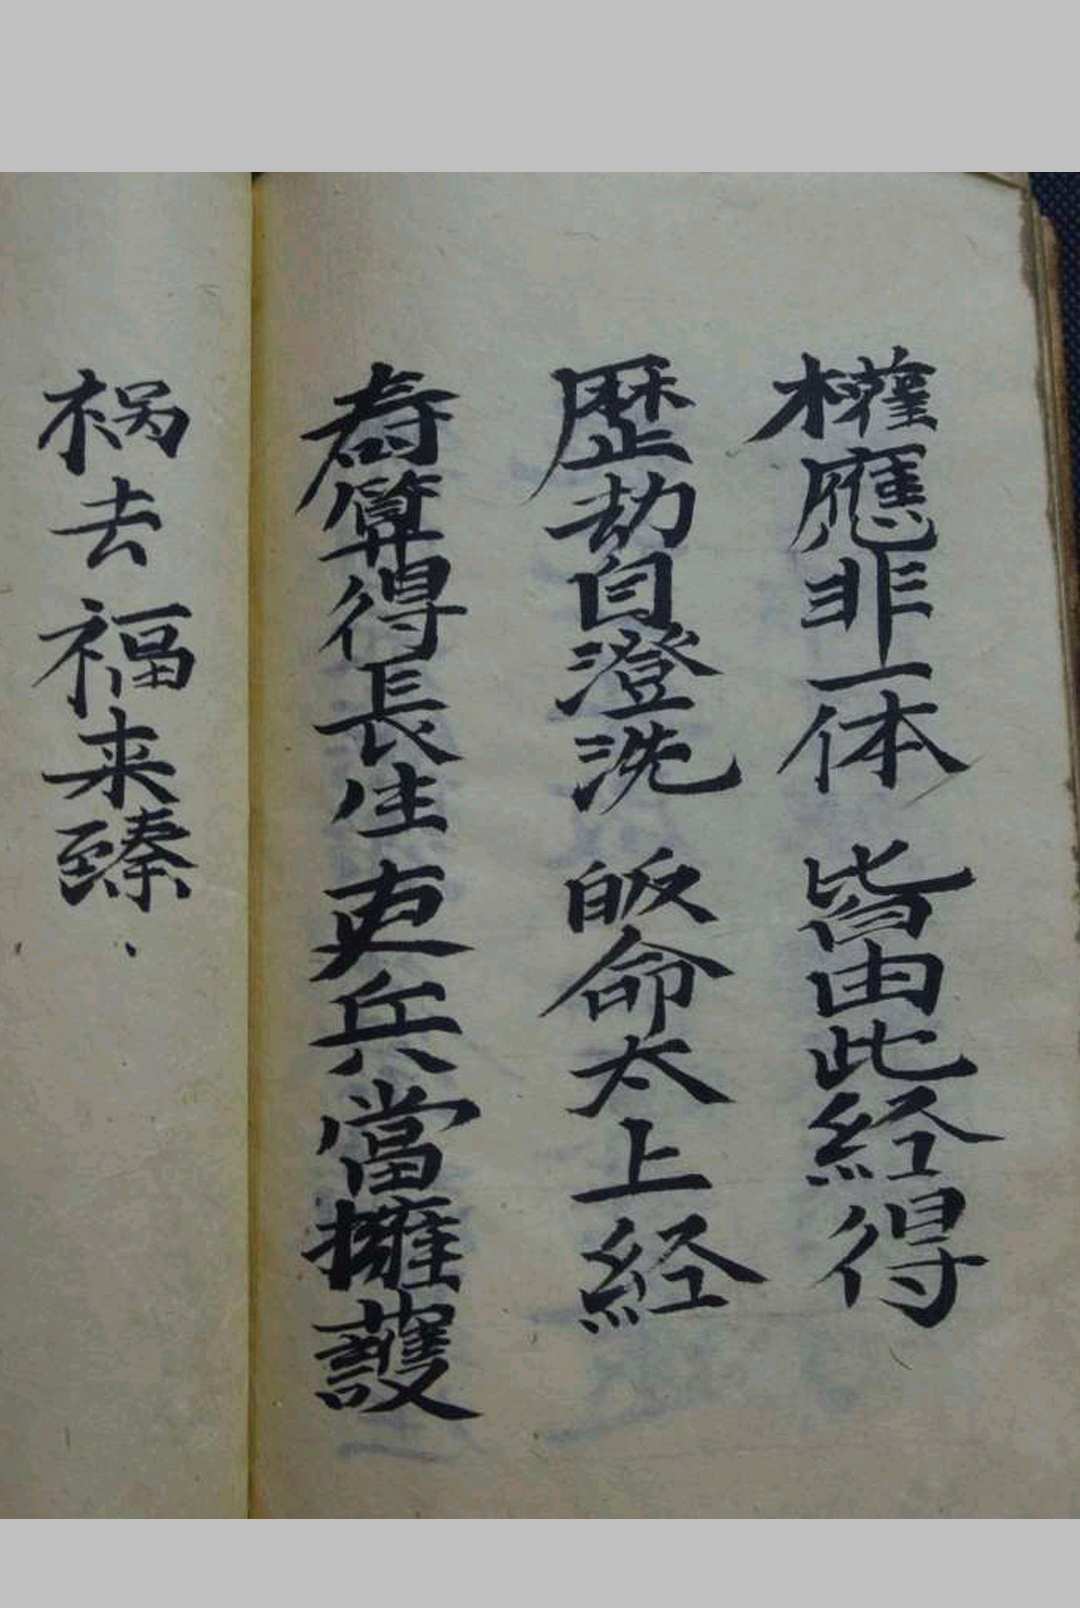 權應非一体 皆由此経得
歴劫自澄洗 皈命太上経
壽算得長生 吏兵當擁護
祸去福来臻、